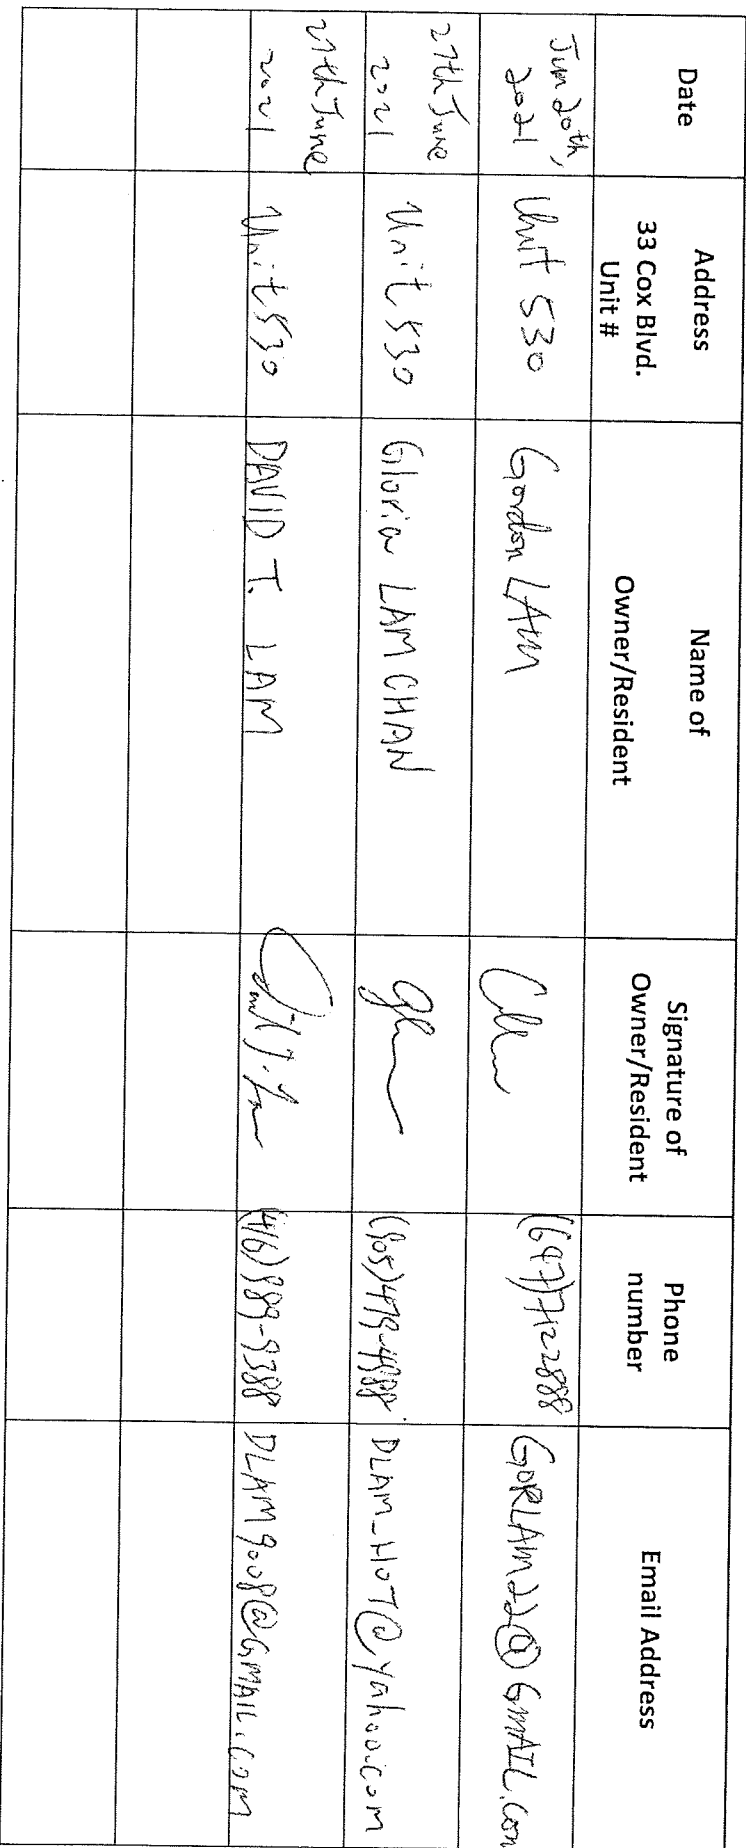 Date
Address
33 Cox Blvd.
Unit #
Name of
Owner/Resident
Signature of
Owner/Resident
Phone
number
Email Address
Jun 20th,
2021
Unit 530
Gordon LAM
(647)7122888
GORLAM22@GMAIL.COM
27th June
2021
Unit 530
Gloria LAM CHAN
(905)479-4988
DLAM_HOT@yahoo.com
27th June
2021
Unit 530
DAVID T. LAM
(416)989-9388
DLAM9008@GMAIL.COM